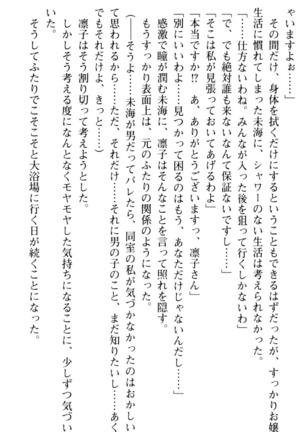 ゃいますよぉ……」
その間だけ、身体を拭くだけにするということもできるはずだが、すっかりお嬢
生活に慣れてしまった未海に、シャワーのない生活は考えられなかった。
「……仕方ないわね。みんなが入った後を狙って行くしかないわ」
「で、でも絶対誰も来ないなんて保証ないですし……」
「そこは私が見張っておいてあげるわよ」
「本当ですか!? あ、ありがとうございますっ、凛子さん」
「別にいいわよ……見つかって困るのはもう、あなただけじゃないんだし……」
感激で瞳が潤む未海に、凛子はそんなことを言って照れを隠す。
もうすっかり表面上は、元のふたりの関係のようになった。
(――そうよ……未海が男だってバレたら、同室の私が気づかなかったのはおかしい
て思われるから……ただ、それだけ……それに男の子のこと、まだ知りたいし……あく
でもそれだけよ、きっと……)
凛子はそう割り切って考えようとした。
しかしそう考える度になんとなくモヤモヤした気持ちになることに、少しずつ気づい
いた。
そうしてふたりでこそこそと大浴場に行く日が続くことになった。